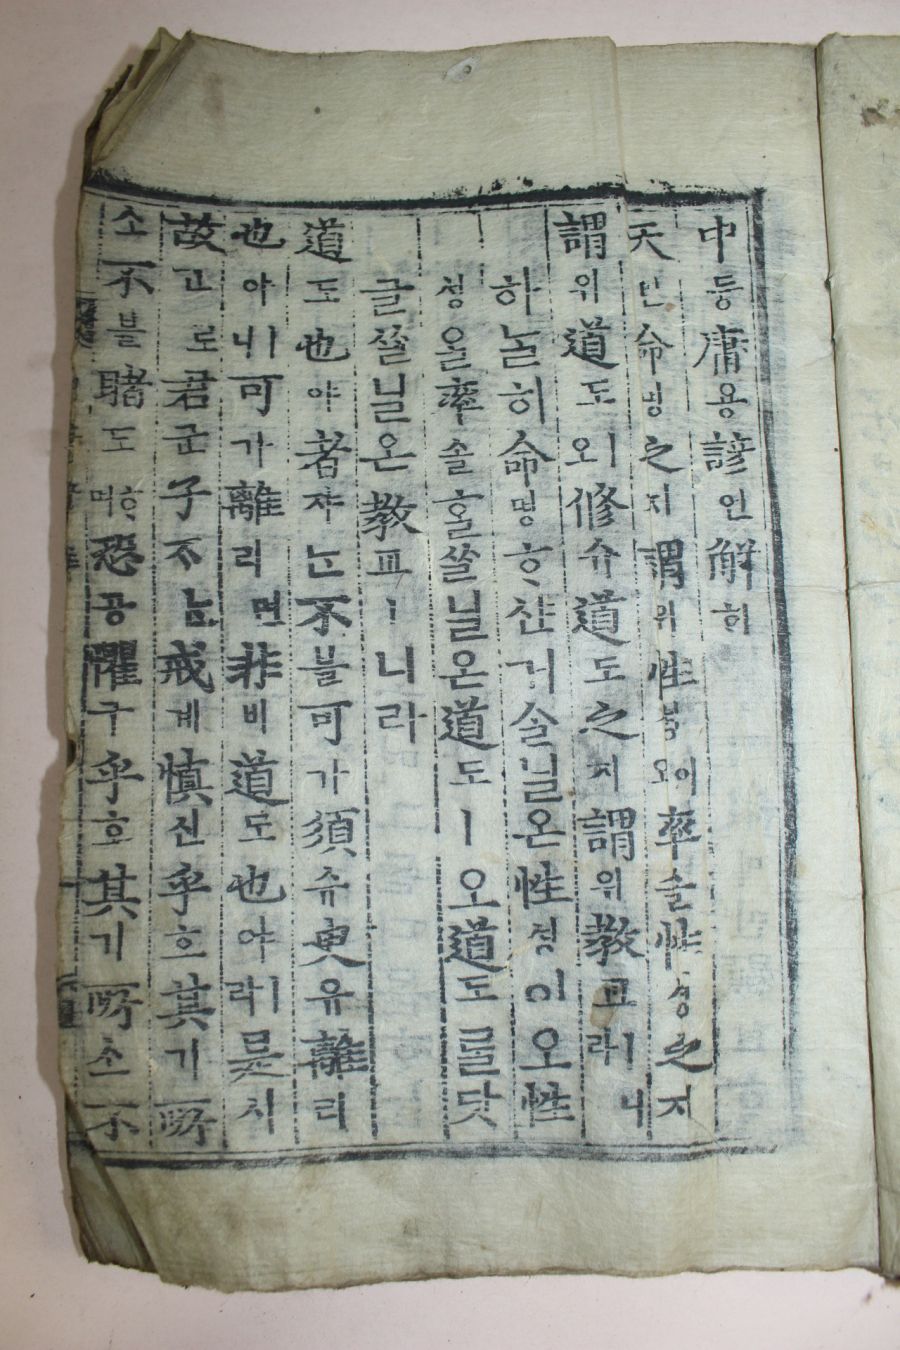 中듕庸용諺언解ᄒᆡ
天텬命명之지謂위性셩이오率솔性셩之지
謂위道도ㅣ오修슈道도之지謂위教교ㅣ니라
하ᄂᆞᆯ히命명ᄒᆞ샨거ᄉᆞᆯ닐온性셩이오性
셩을率솔ᄒᆞᆯᄊᆞᆯ닐온道도ㅣ오道도ᄅᆞᆯ닷
글ᄊᆞᆯ닐온教교ㅣ니라
道도也야者쟈ᄂᆞᆫ不블可가須슈臾유離리
也야ㅣ니可가離리면非비道도也야ㅣ라是시
故고로君군子ᄌᆞᄂᆞᆫ戒계慎신乎호其기所
소不블睹도ᄒᆞ며恐공懼구乎호其기所소不